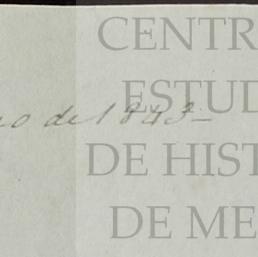 CENTR
ESTUD
no de 1843-
DE HIST
DE ME